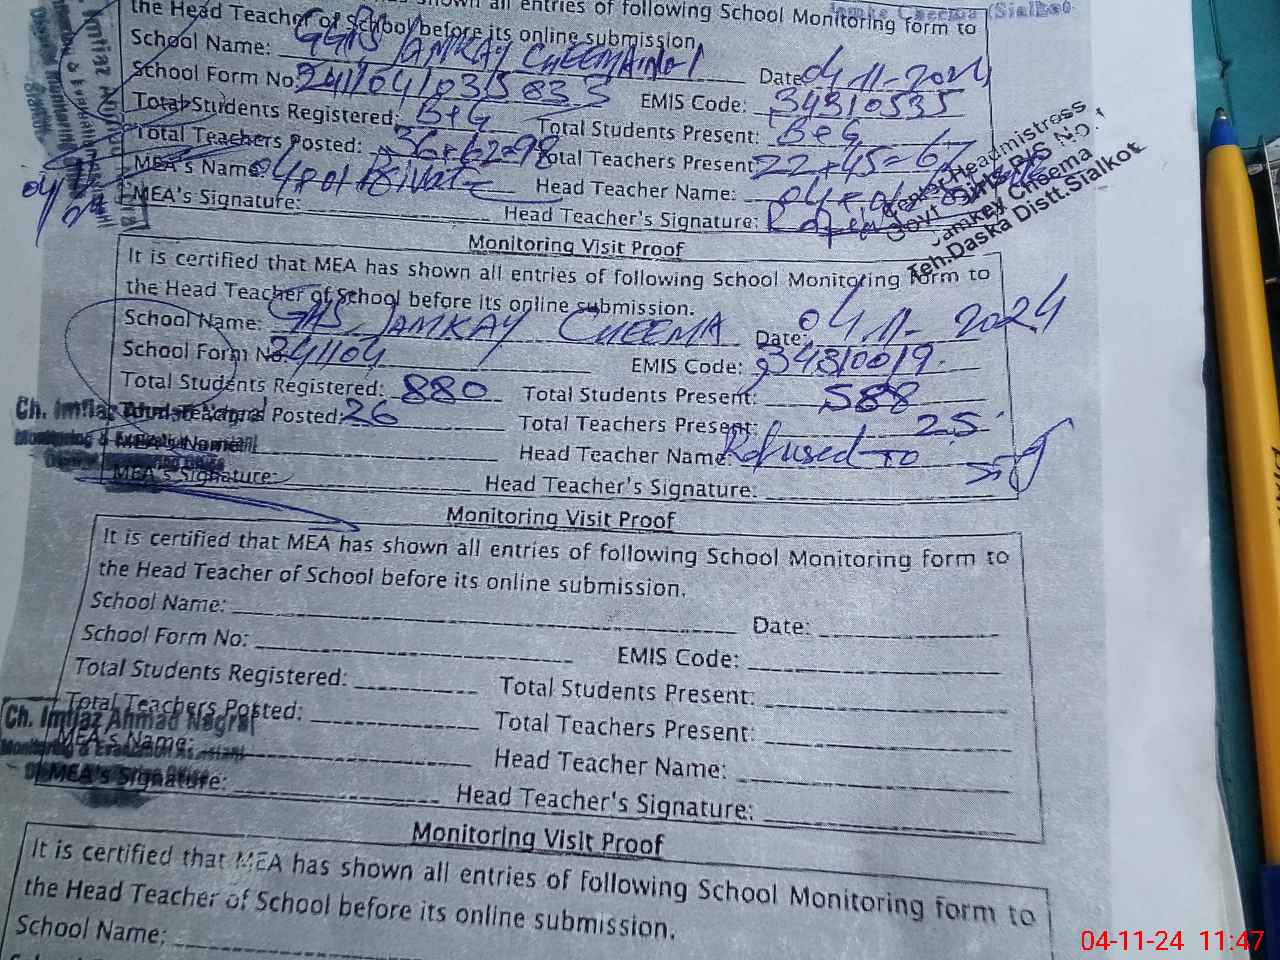 shown all entries of following School Monitoring form to
the Head Teacher of School before its online submission.
School Name: GGHS JAMKAY CHEEMA No1 Date: 04.11-2024
School Form No: 24110410315833 EMIS Code: 34310535
Total Students Registered: B+G Total Students Present: B+G
Total Teachers Posted: 36+62=98 Total Teachers Present: 22+45=67
MEA's Name: 04 Private Head Teacher Name: 04
MEA's Signature: Head Teacher's Signature:
Senior Headmistress
Govt Girls No.1
Jamkey Cheema
Teh.Daska Distt.Sialkot
Monitoring Visit Proof
It is certified that MEA has shown all entries of following School Monitoring form to
the Head Teacher of School before its online submission.
School Name: GHS JAMKAY CHEEMA Date: 04.11-2024
School Form No: 241104 EMIS Code: 34310019.
Total Students Registered: 880 Total Students Present: 588
Total Teachers Posted: 26 Total Teachers Present: 25
MEA's Name: Head Teacher Name: Refused to
MEA's Signature: Head Teacher's Signature:
Monitoring Visit Proof
It is certified that MEA has shown all entries of following School Monitoring form to
the Head Teacher of School before its online submission.
School Name: Date:
School Form No: EMIS Code:
Total Students Registered: Total Students Present:
Total Teachers Posted: Total Teachers Present:
Ch. Imtiaz Ahmad Nagra
MEA's Name: Head Teacher Name:
Monitoring & Evaluation Assistant
MEA's Signature: Head Teacher's Signature:
Monitoring Visit Proof
It is certified that MEA has shown all entries of following School Monitoring form to
the Head Teacher of School before its online submission.
School Name:
04-11-24 11:47